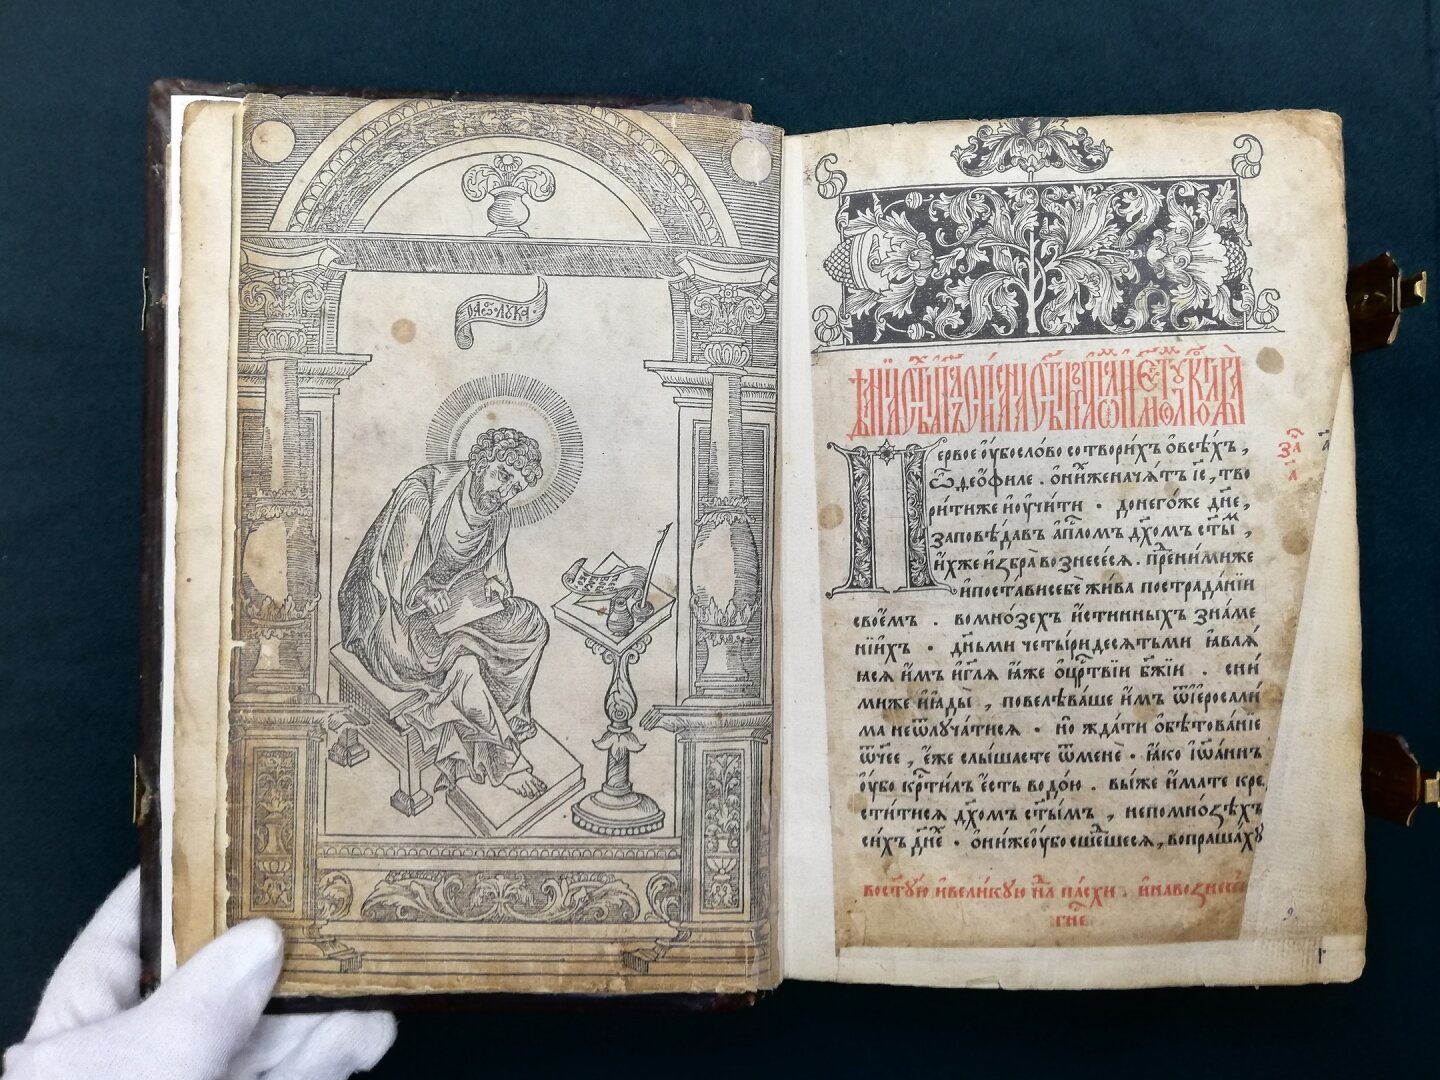 ОА҆Ѡ҆. ЛꙊКА·
П
ервое ᲂу҆́бо сло́во сотвори́хъ ѡ҆ всѣ́хъ,
ѽ ѳео́филе . ѡ҆ ни́хже нача́тъ і҆с҃, тво
ри́ти же и҆ ᲂу҆чи́ти · до него́же дн҃е,
заповѣ́давъ а҆пⷭ҇ломъ дх҃омъ ст҃ы́м ,
и҆́хже и҆збра̀ вознесе́сѧ . пред ни́ми же
и҆ поста́ви себѐ жи́ва по страда́нїи
свое́мъ . во мно́зехъ и҆́стинныхъ зна́ме
нїи҆хъ · дньми четы́ридесѧтьми ꙗ҆влѧ́
ꙗсѧ и҆̀мъ и҆ гл҃ѧ ꙗ҆́же ѡ҆ црⷭ҇твїи бж҃їи . с ни́
ми же и҆ ꙗ҆ды̀ , повелѣва́ше и҆̀мъ ѿ і҆еросали́
ма не ѿлꙋча́тисѧ · но̀ жда́ти ѡ҆бѣтова́нїе
ѿч҃ее , е҆́же слы́шасте ѿ менѐ · ꙗ҆́ко і҆ѡа́ннъ
ᲂу҆́бо крⷭ҇ти́лъ є҆́сть водо́ю . вы́ же и҆́мате кре
сти́тисѧ дх҃омъ ст҃ы́мъ , не по мно́зѣхъ
си́хъ дн҃е · ѡ҆ни́ же ᲂу҆́бо сше́дшесѧ , вопраша́хꙋ
во ст҃ꙋ́ю и҆ вели́кꙋю нл҃ пасхи . и҆ на вознесе́нїе
гн҃е
за
а
а
9.